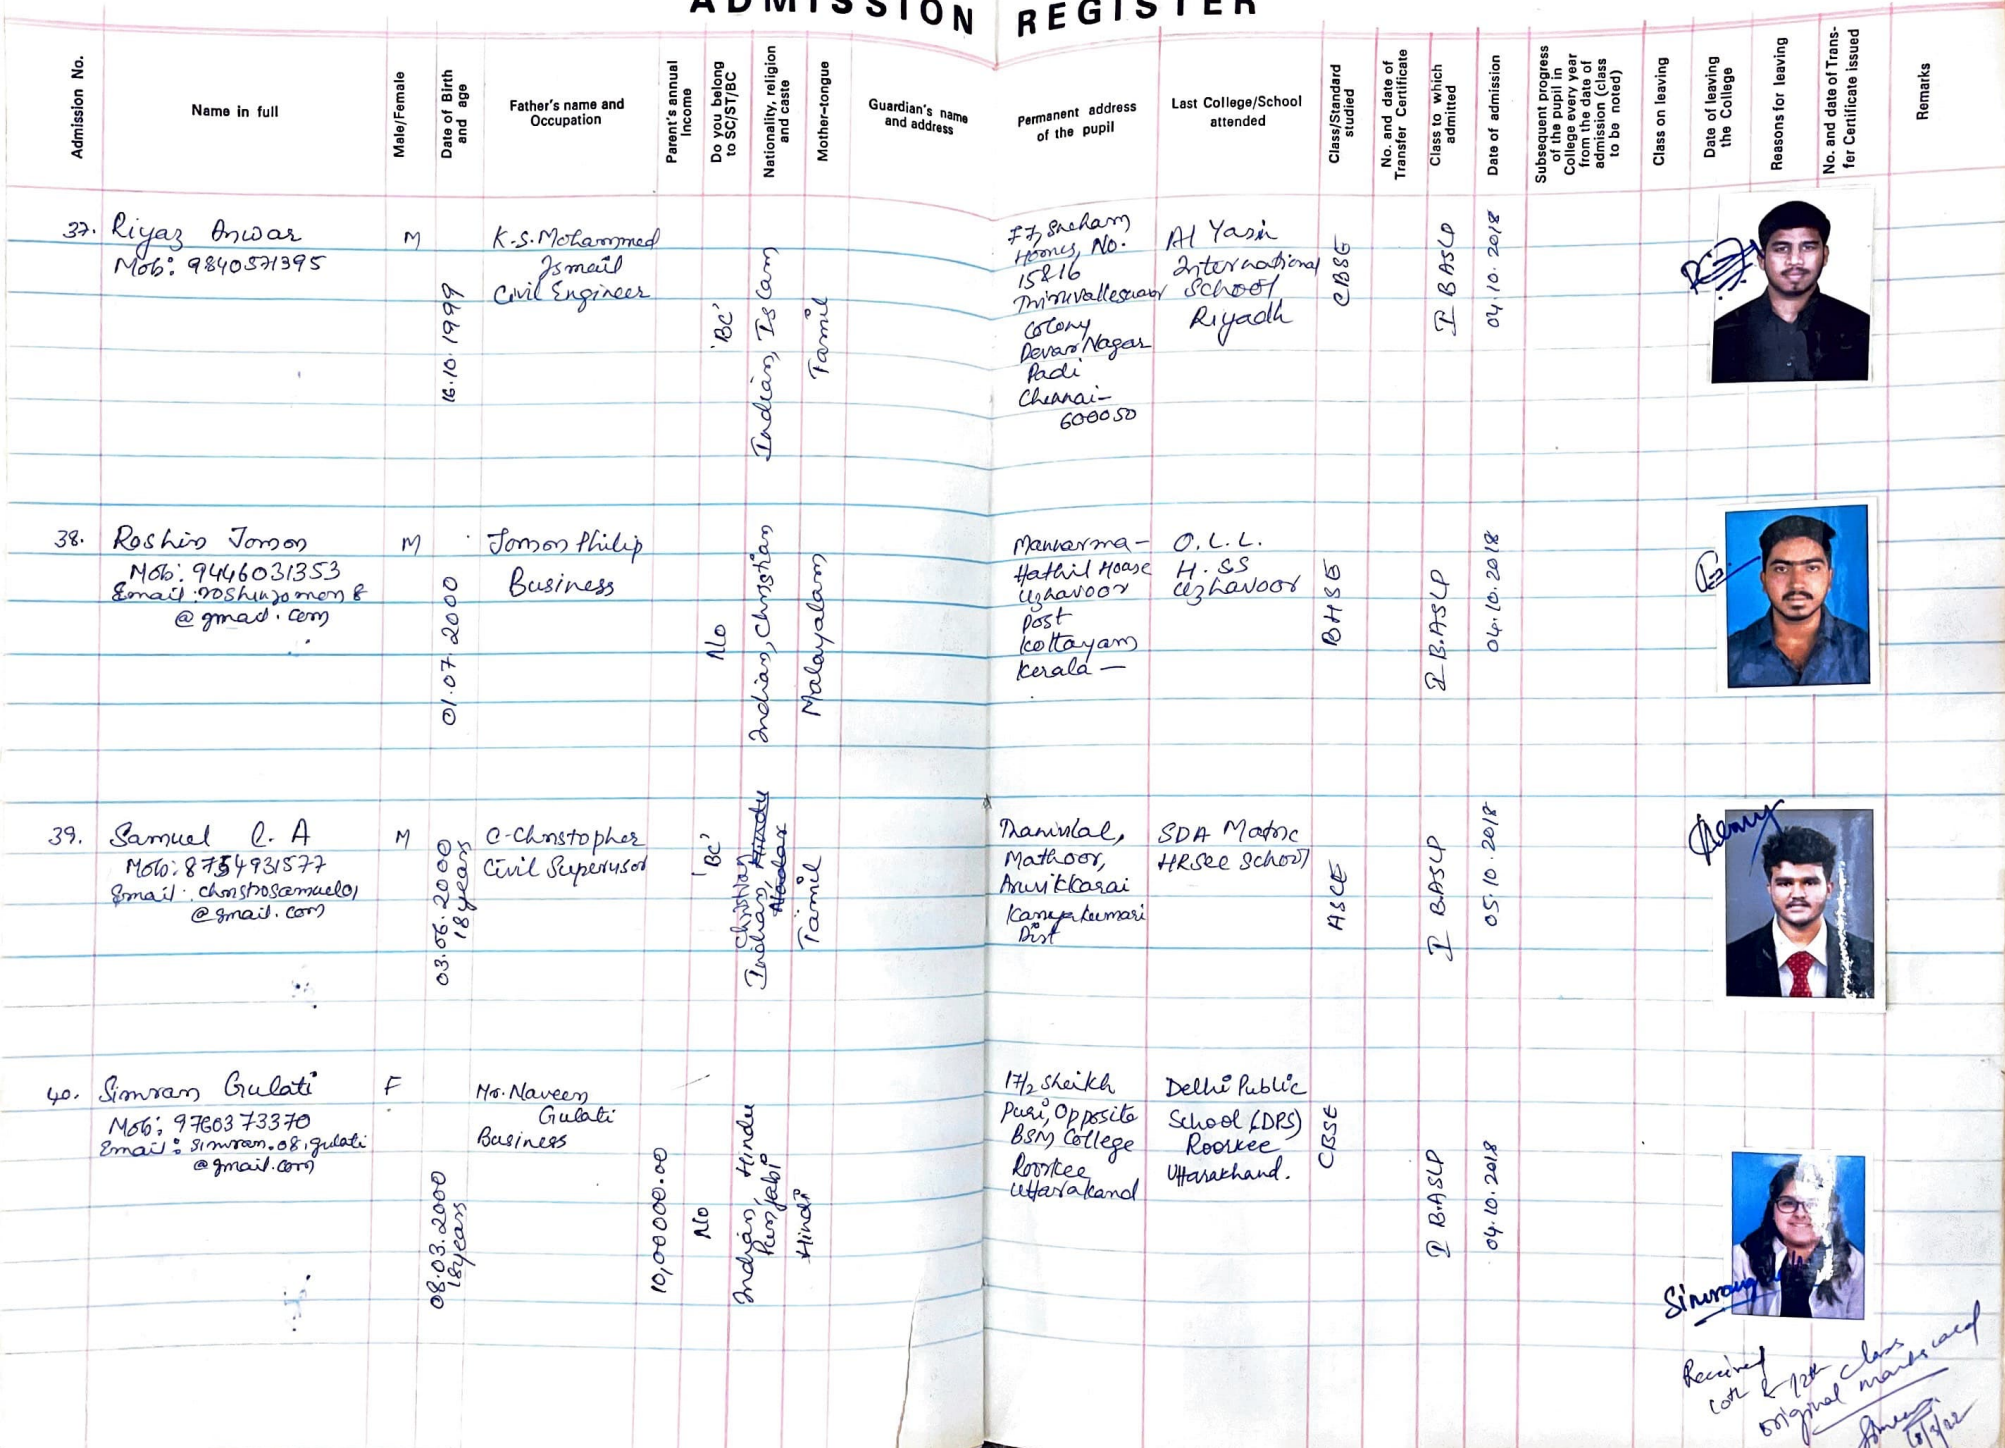 ADMISSION REGISTER
Admission No.
Name in full
Male/Female
Date of Birth
and age
Father's name and
Occupation
Parent's annual
Income
Do you belong
to SC/ST/BC
Nationality, religion
and caste
Mother-tongue
Guardian's name
and address
Permanent address
of the pupil
Last College/School
attended
Class/Standard
studied
No. and date of
Transfer Certificate
Class to which
admitted
Date of admission
Subsequent progress
of the pupil in
College every year
from the date of
admission (class
to be noted)
Class on leaving
Date of leaving
the College
Reasons for leaving
No. and date of Trans-
fer Certificate issued
Remarks
37.
Riyaz Anwar
Mob: 9840571395
M
16.10.1999
K.S. Mohammed
Ismail
Civil Engineer
'BC'
Indian, Islam
Tamil
Homes, No.
15&16
Colony
Devar Nagar
Padi
Chennai-
600050
Al Yasin
International
School
Riyadh
CBSE
I BASLP
04.10.2018
38.
Roshin Jomon
Mob: 9446031353
Email: roshinjomon8
@gmail.com
M
01.07.2000
Jomon Philip
Business
No
Indian, Christian
Malayalam
Mannarma-
Hathil House
Uzhavoor
Post
Kottayam
Kerala -
O.L.L.
H.SS
Uzhavoor
BHSE
I B.ASLP
04.10.2018
39.
Samuel C. A
Mob: 8754931577
Email: christosamuel01
@gmail.com
M
03.06.2000
18 years
C-Christopher
Civil Supervisor
'BC'
Christian
Indian, Hindu
Nadar
Tamil
Mathoor,
Aruvikkarai
Kanyakumari
Dist
SDA Matric
HRSec School
ASCE
I BASLP
05.10.2018
40.
Simran Gulati
Mob: 9760373370
Email: simran.08.gulati
@gmail.com
F
08.03.2000
18 years
Mr. Naveen
Gulati
Business
10,00000.00
No
Indian, Hindu
Punjabi
Hindi
17/2 Sheikh
Puri, Opposite
BSM College
Roorkee
Uttarakand
Delhi Public
School (DPS)
Roorkee
Uttarakhand.
CBSE
I BASLP
04.10.2018
Simrang
Received
10th & 12th class
original marks card